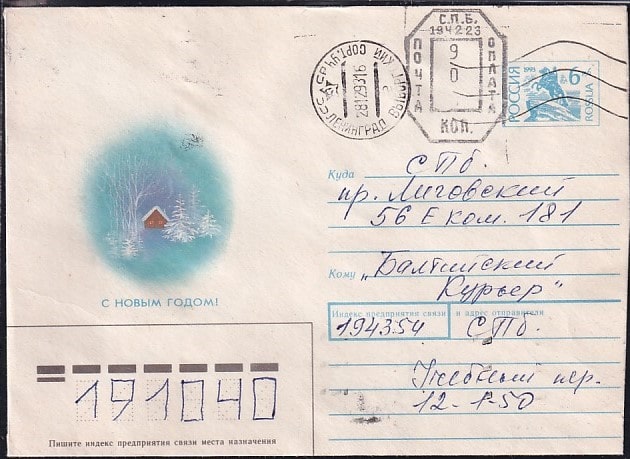 С.П.Б.
194223
ПОЧТА
90
ОПЛАТА
КОП.
ЛЕНИНГРАД
281293
РОССИЯ
6
ROSSIA
Куда СПб.
пр. Лиговский
56 Е ком. 181
Кому „Балтийский
Курьер"
Индекс предприятия связи и адрес отправителя
194354 СПб.
Учебный пер.
12-1-50
С НОВЫМ ГОДОМ!
191040
Пишите индекс предприятия связи места назначения